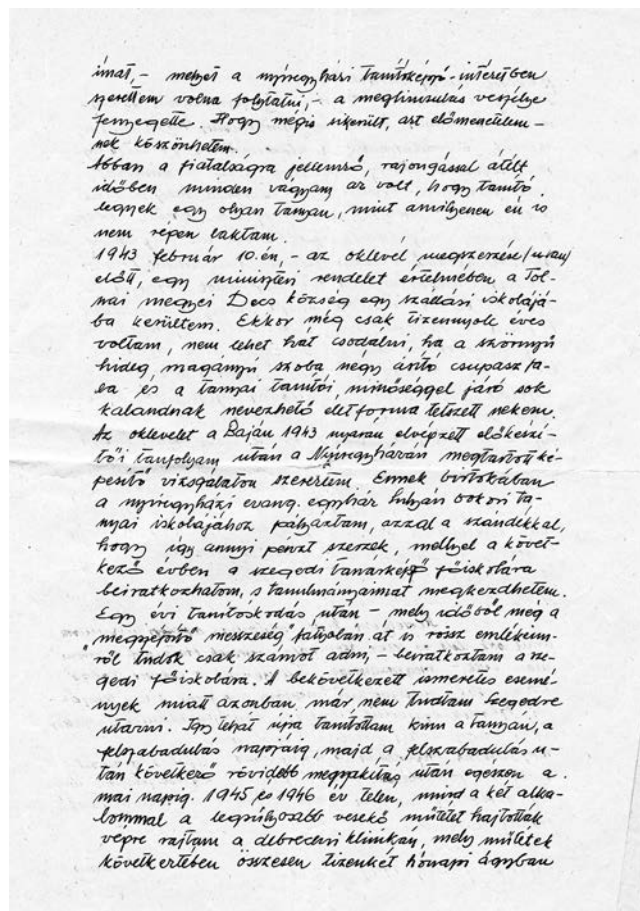 imat, – melyet a nyíregyházi tanítóképző-intézetben
szerettem volna folytatni, – a meghiúsulás veszélye
fenyegette. Hogy mégis sikerült, azt előmenetelem-
nek köszönhetem.
Abban a fiatalságra jellemző, rajongással átélt
időben minden vágyam az volt, hogy tanító
legyek egy olyan tanyán, mint amilyenen én is
nem régen laktam.
1943 február 10.én, – az oklevél megszerzése
előtt, egy miniszteri rendelet értelmében a Tol-
nai megyei Decs község egy szállási iskolájá-
ba kerültem. Ekkor még csak tizennyolc éves
voltam, nem lehet hát csodálni, ha a szörnyű
hideg, magányú szoba négy ásító csupasz fa-
la és a tanyai tanítói, minőséggel járó sok
kalandnak nevezhető életforma tetszett nekem.
Az oklevelet a Baján, 1943 nyarán elvégzett előkészí-
tői tanfolyam után a Nyíregyházán megtartott ké-
pesítő vizsgálaton szereztem. Ennek birtokában
a nyíregyházi evang. egyház bokori ta-
nyai iskolájához pályáztam, azzal a szándékkal,
hogy így annyi pénzt szerzek, mellyel a követ-
kező évben a szegedi tanárképző főiskolára
beiratkozhatom, s tanulmányaimat megkezdhetem.
Egy évi tanítóskodás után – mely időből még a
"megszépítő messzeség" fátyolán át is rossz emlékem-
ről tudok csak számot adni, – beiratkoztam a sze-
gedi főiskolára. A bekövetkezett ismeretes esemé-
nyek miatt azonban, már nem tudtam Szegedre
utazni. Így tehát újra tanítottam kinn a tanyán, a
felszabadulás napjáig, majd a felszabadulás u-
tán következő rövidebb megszakítás után egészen a
mai napig. 1945 és 1946 év telén, mind a két alka-
lommal a legsúlyosabb vesekő műtétet hajtották
végre rajtam a debreceni klinikán, mely műtétek
következtében összesen tizenkét hónapi ágyban